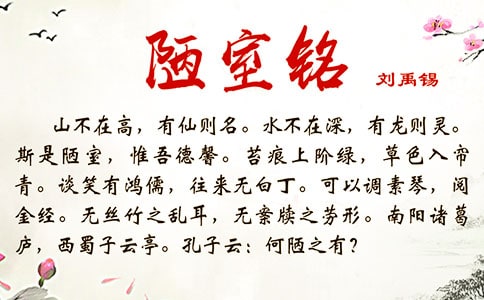 陋室铭
刘禹锡
山不在高，有仙则名。水不在深，有龙则灵。
斯是陋室，惟吾德馨。苔痕上阶绿，草色入帘
青。谈笑有鸿儒，往来无白丁。可以调素琴，阅
金经。无丝竹之乱耳，无案牍之劳形。南阳诸葛
庐，西蜀子云亭。孔子云：何陋之有？